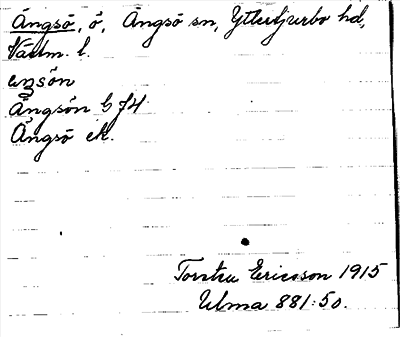 Ängsö, ö, Ängsö sn, Yttertjurbo hd,
Västm. l.
ängsön
Ängsön G 74
Ängsö ek.
Torsten Ericsson 1915
Ulma 881:50.